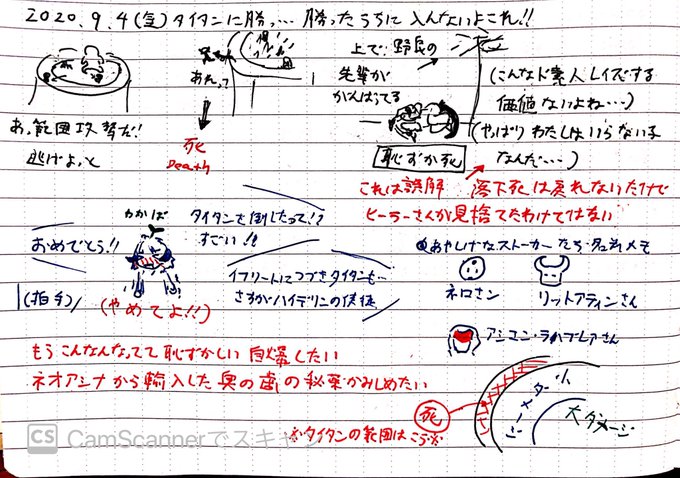 2020.9.4(金)タイタンに勝っ… 勝ったうちに入んないよこれ!!
あ、範囲攻撃だ!
逃げよっと
あれって
死
Death
上で野良の
先輩が
がんばってる
恥ずか死
(こんなド素人レイズする
価値ないよね…)
(やっぱりわたしはいらない子
なんだ…)
これは誤解 落下死は戻れないだけで
ヒーラーさんが見捨てたわけではない
おめでとう!!
(拍手)
わかば
タイタンを倒したって!?
すごい!!
(やめてよ!!)
イフリートにつづきタイタンも…
さすがハイデリンの使徒
あやしげなストーカーたち名前メモ
ネロさん
リットアティンさん
アシエン・ラハブレアさん
もうこんなんなってて恥ずかしい自爆したい
ネオアジナから輸入した奥の歯の秘薬かみしめたい
死
ダメージ小
大ダメージ
※タイタンの範囲はこう※
CS CamScannerでスキャン